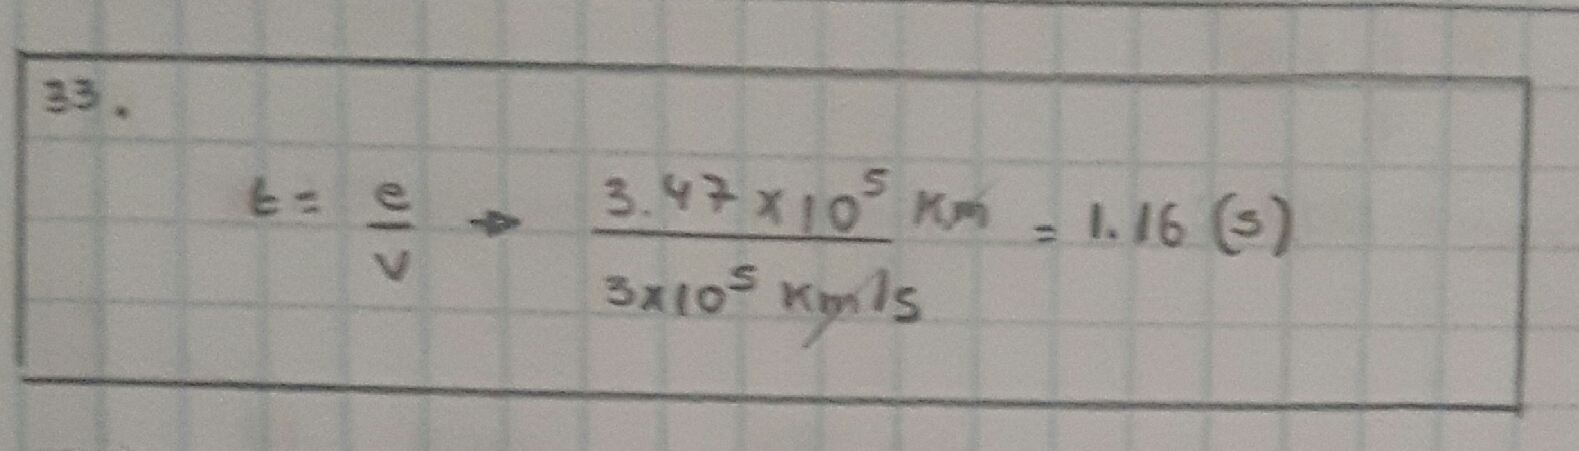 33.
t = e/v → 3.47 x 10⁵ Km / 3x10⁵ Km/s = 1.16 (s)